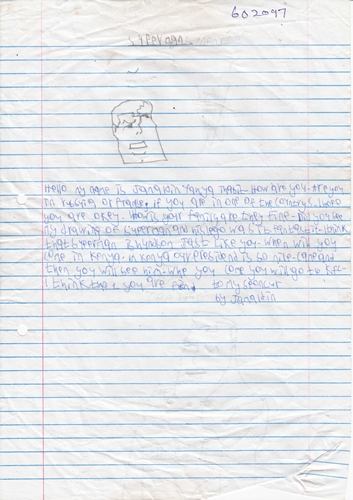 602097
superman
Hello my name is Janekin How are you. Are you
in russia or France. if you are in one of the countrys I hope
you are okey. How is your family are they fine. did you see
my drawing of superman and his logo was it fantastic. I think
that superman is handson Just like you. when will you
come in Kenya. in Kenya our presidend is so nice. come and
then you will see him. whe you come you will go to KFC
I think that you are fan. to my sponcur
by Janekin